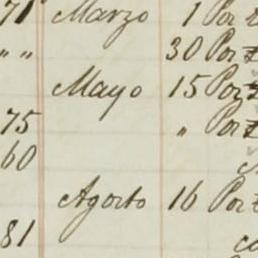 71 Marzo 1 Por
" " 30 Por
Mayo 15 Por
75 " Por
60
Agosto 16 Por
81